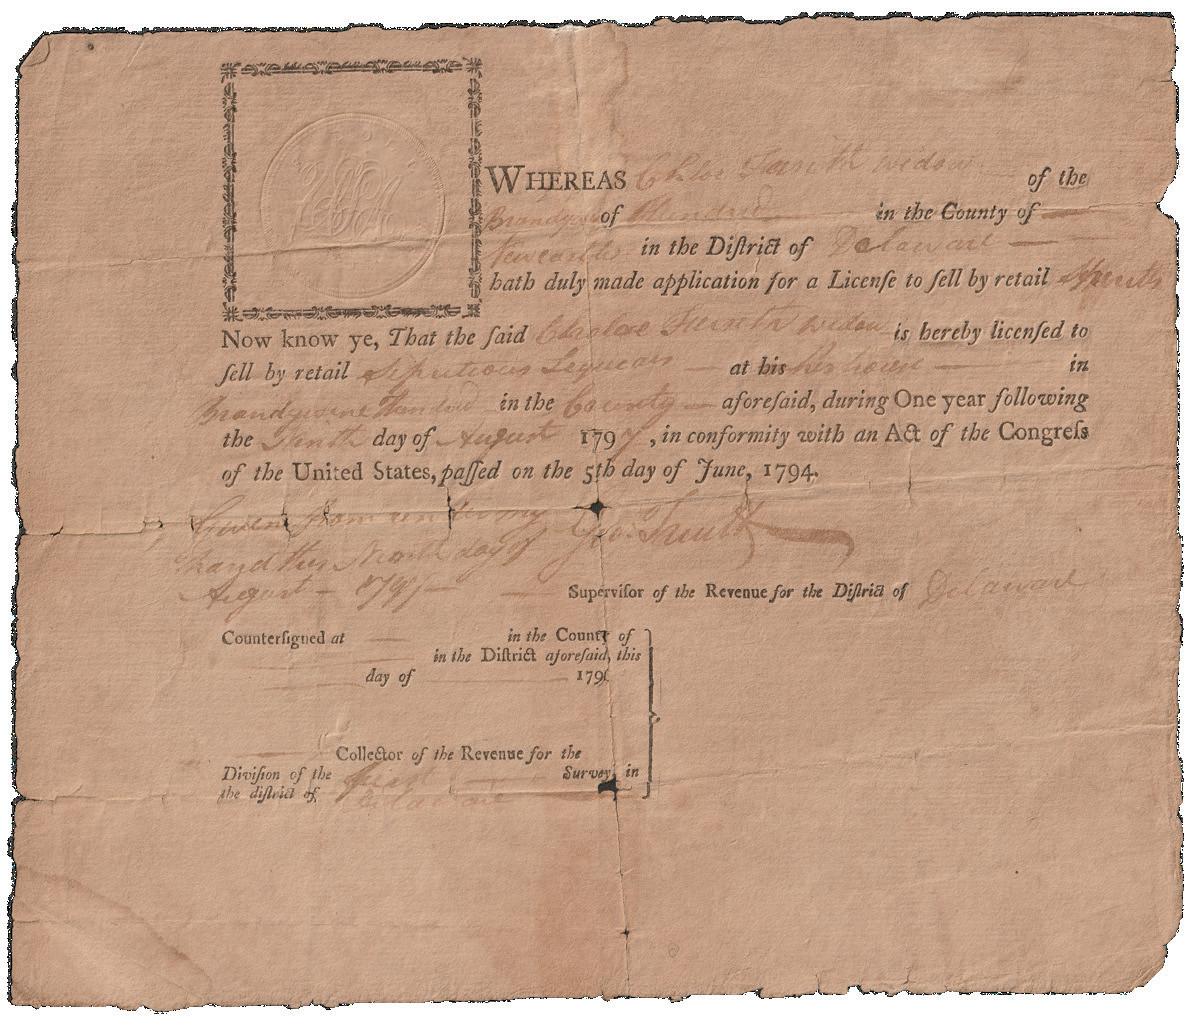 WHEREAS Chloe Smith widow of the
Brandywine of Hundred in the County of
Newcastle in the Diſtrict of Delaware
hath duly made application for a Licenſe to ſell by retail
Now know ye, That the ſaid Smith widow is hereby licenſed to
ſell by retail at his house in
Brandywine Hundred in the County aforeſaid, during One year following
the day of August 1797, in conformity with an Act of the Congreſs
of the United States, paſſed on the 5th day of June, 1794.
Given from under my
hand this day of
August 1797
Geo: Truitt
Superviſor of the Revenue for the Diſtrict of Delaware
Counterſigned at in the County of
in the Diſtrict aforeſaid, this
day of 179
Collector of the Revenue for the
Diviſion of the first Survey in
the diſtrict of Delaware